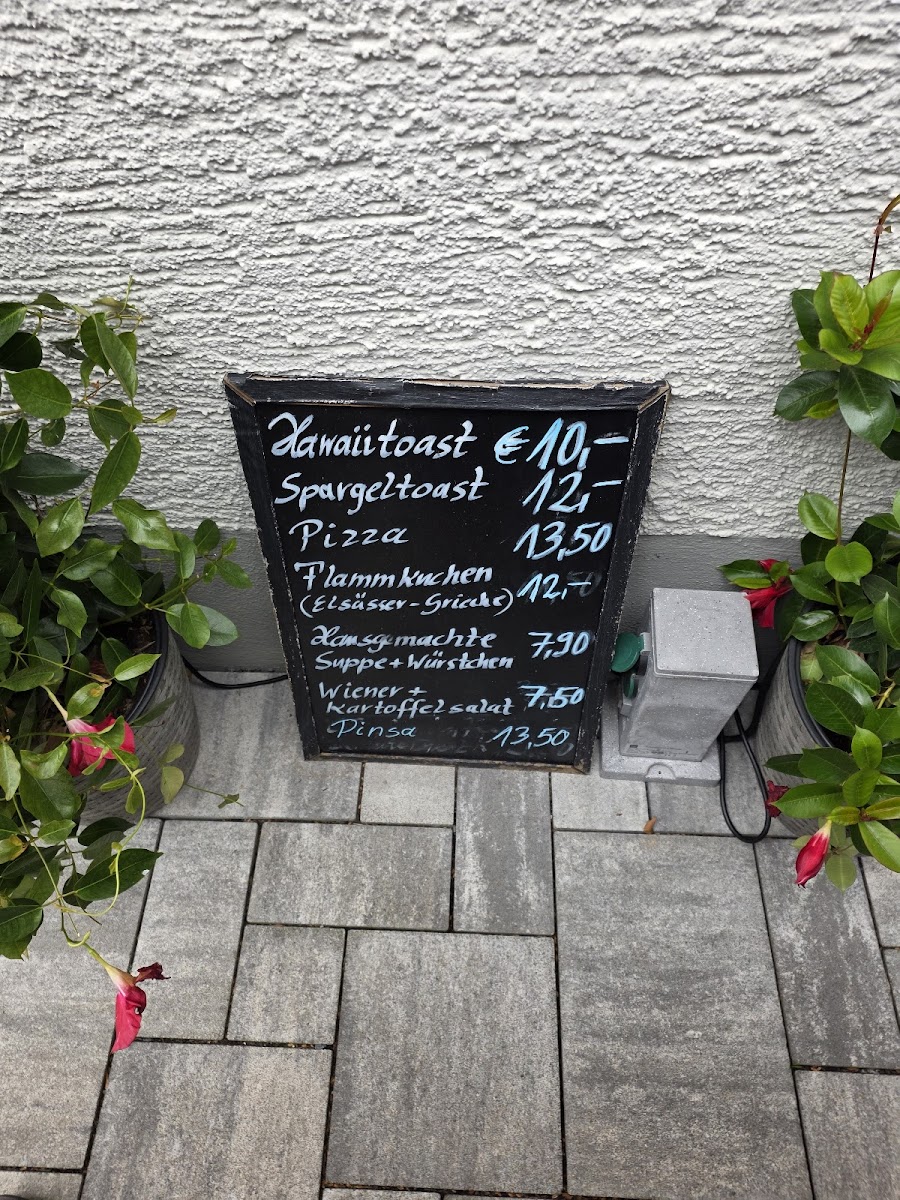 Hawaiitoast € 10,-
Spargeltoast 12,-
Pizza 13,50
Flammkuchen 12,-
(Elsässer-Grieche)
Hausgemachte 7,90
Suppe + Würstchen
Wiener + 7,50
Kartoffelsalat
Pinsa 13,50